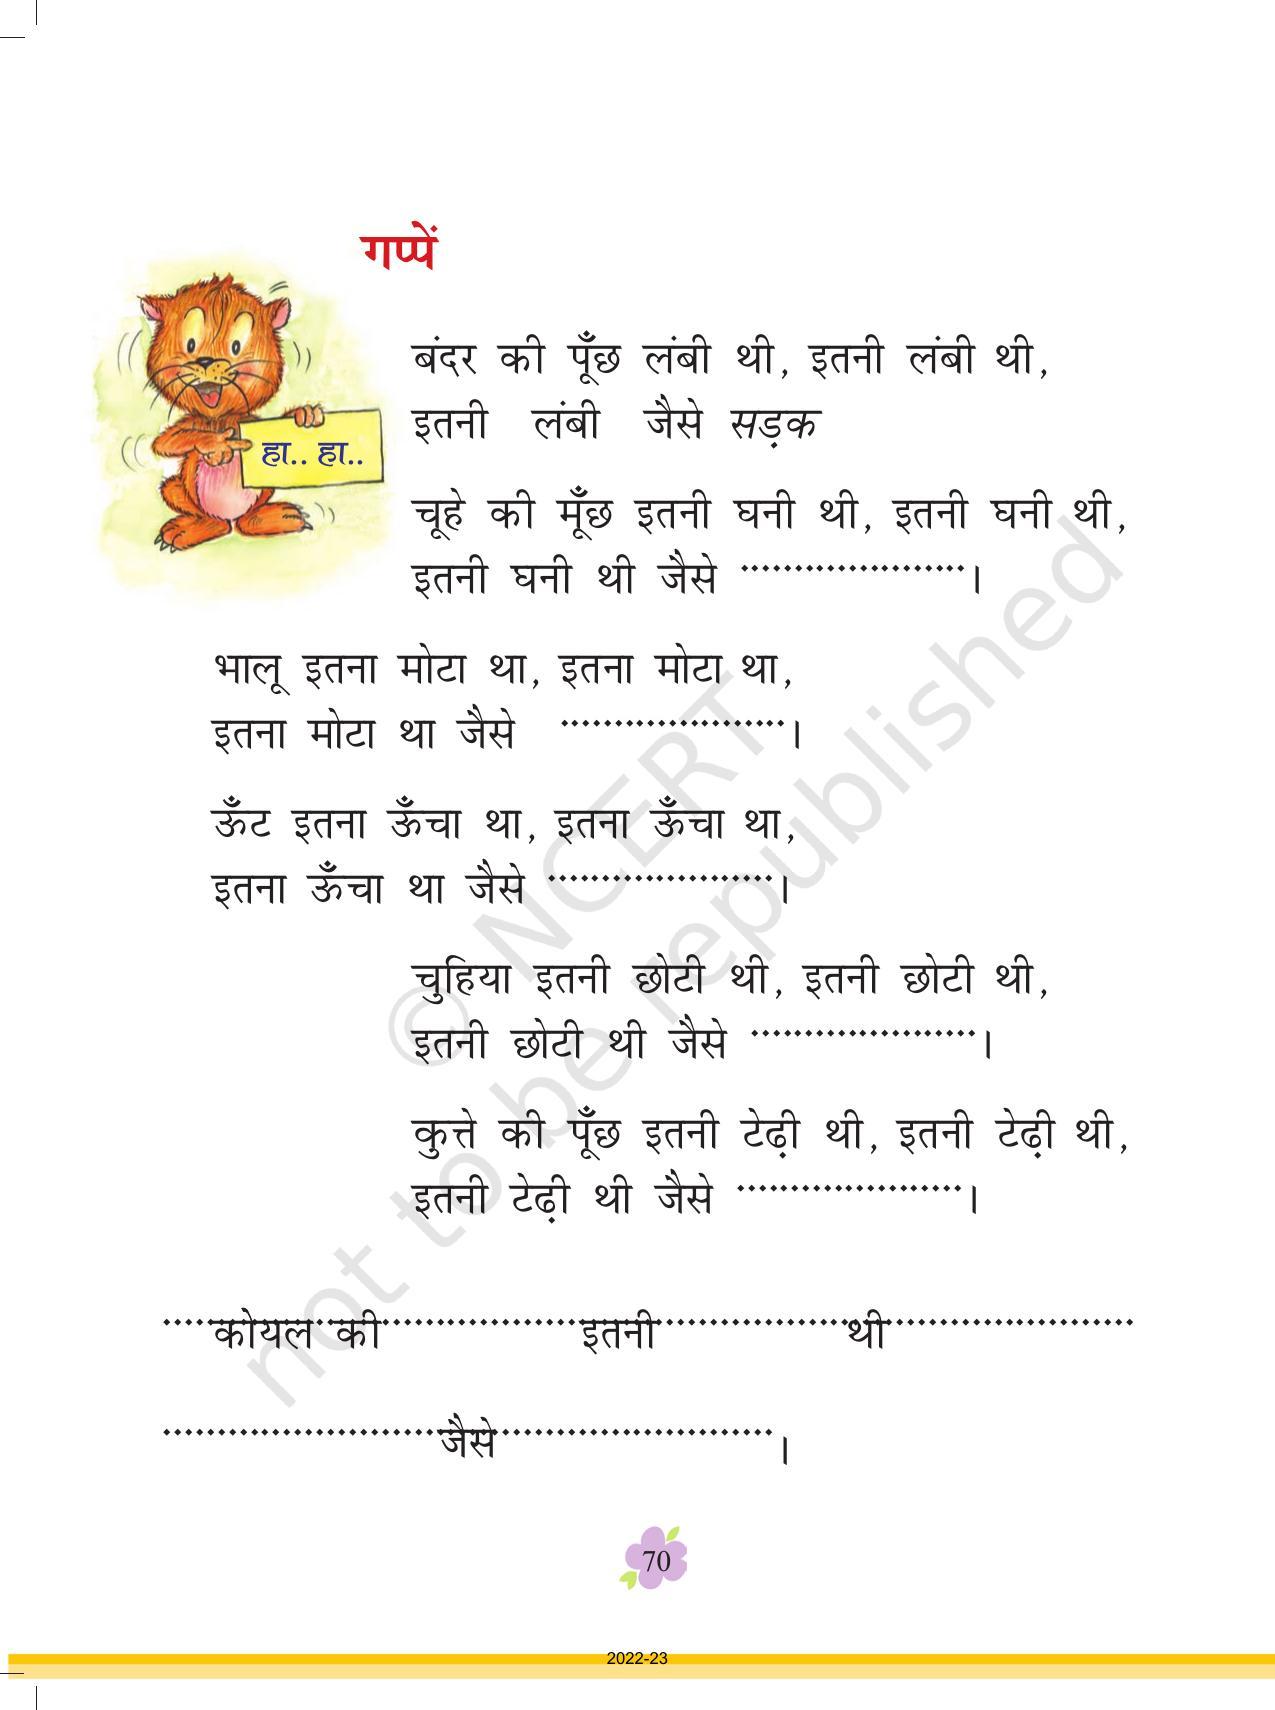 गप्पें
हा.. हा..
बंदर की पूँछ लंबी थी, इतनी लंबी थी,
इतनी लंबी जैसे सड़क
चूहे की मूँछ इतनी घनी थी, इतनी घनी थी,
इतनी घनी थी जैसे .....................।
भालू इतना मोटा था, इतना मोटा था,
इतना मोटा था जैसे .....................।
ऊँट इतना ऊँचा था, इतना ऊँचा था,
इतना ऊँचा था जैसे .....................।
चुहिया इतनी छोटी थी, इतनी छोटी थी,
इतनी छोटी थी जैसे .....................।
कुत्ते की पूँछ इतनी टेढ़ी थी, इतनी टेढ़ी थी,
इतनी टेढ़ी थी जैसे .....................।
.....कोयल की...................इतनी..................थी.......................
..........................जैसे..........................।
© NCERT
not to be republished
70
2022-23